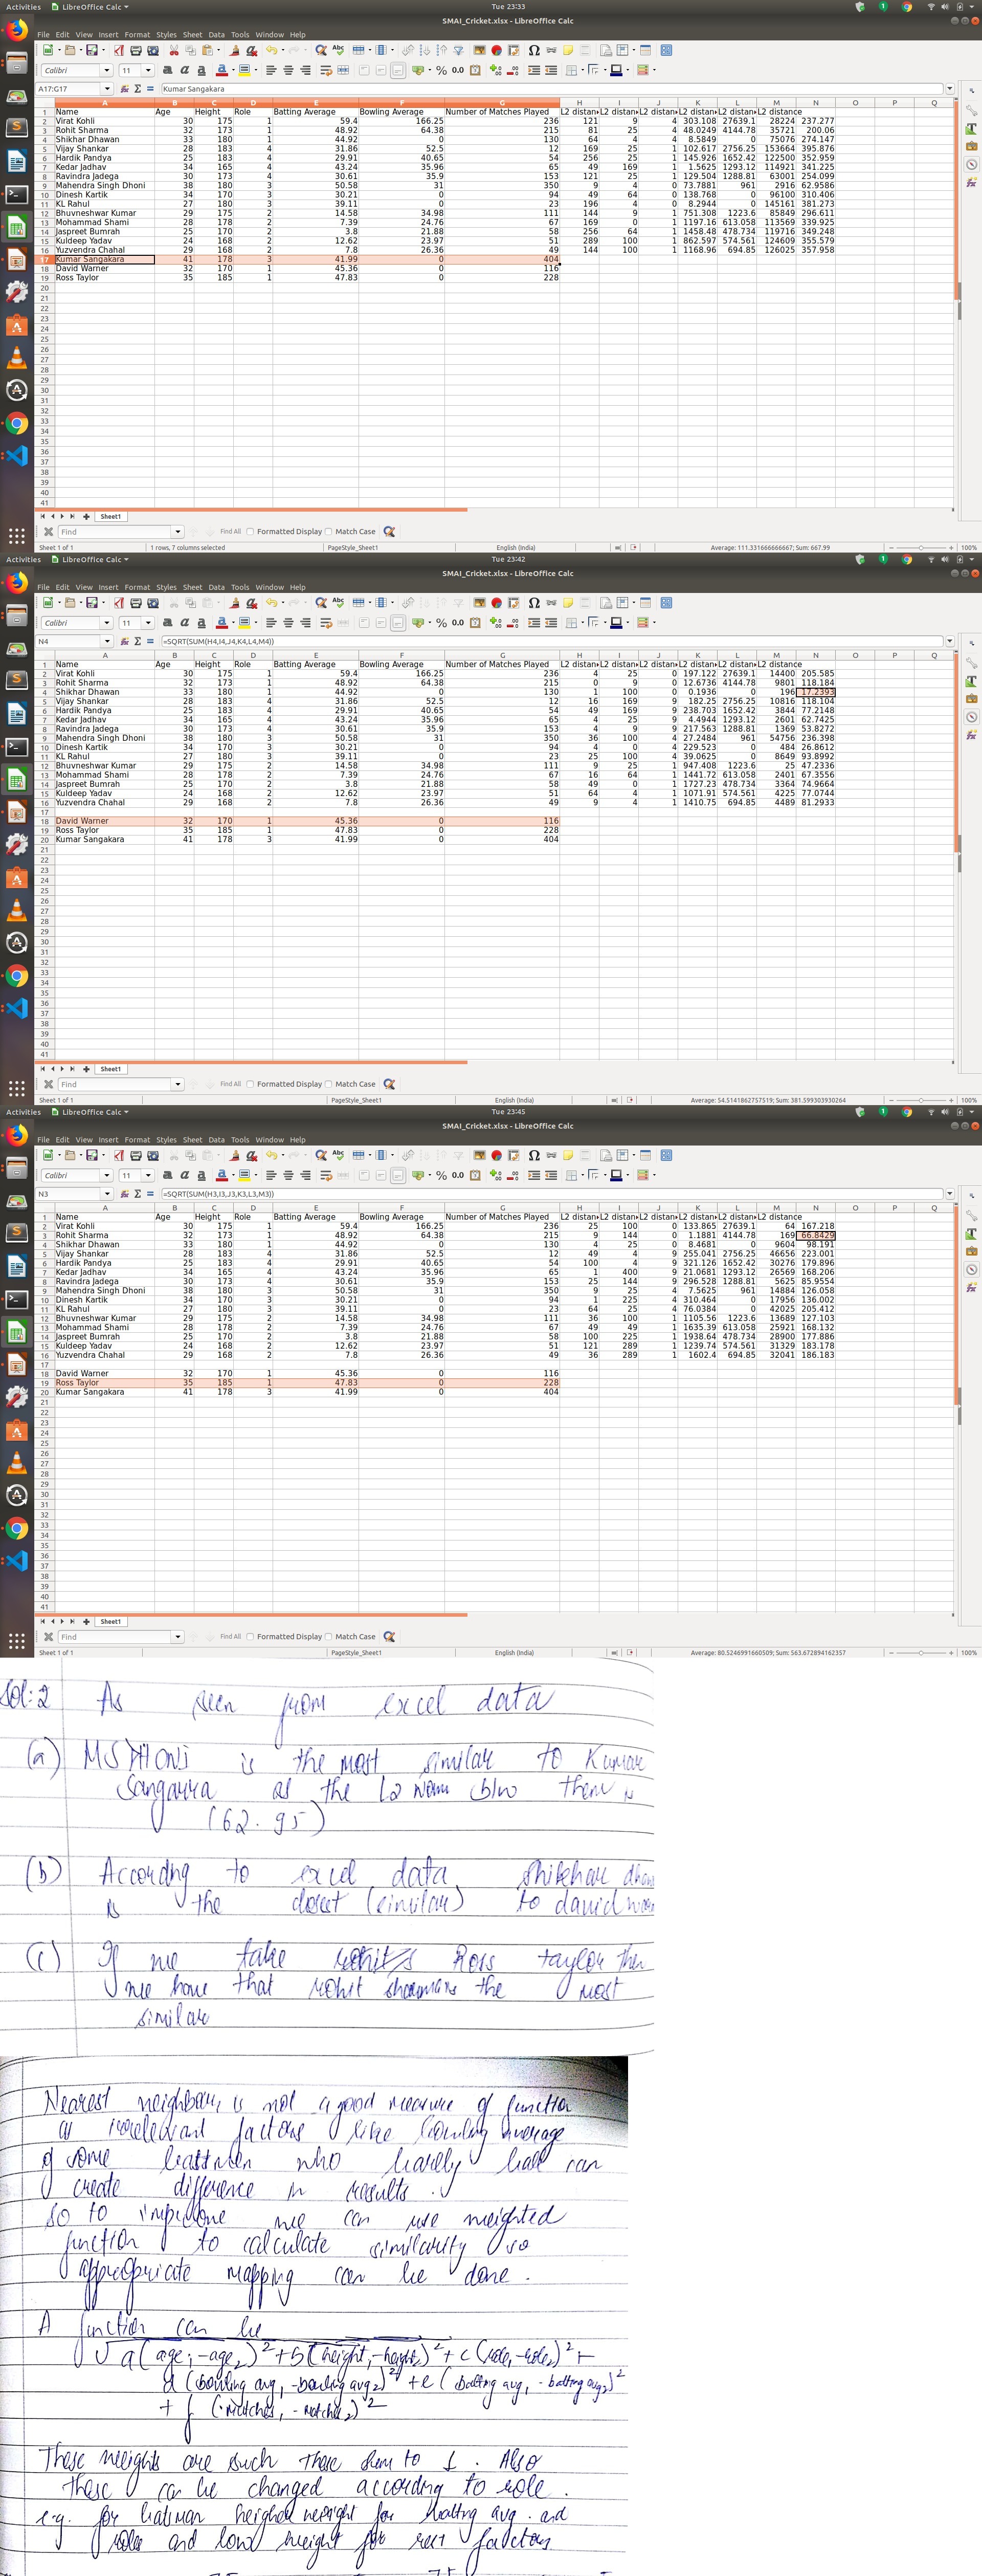 Activities LibreOffice Calc Tue 23:33
SMAI_Cricket.xlsx - LibreOffice Calc
File Edit View Insert Format Styles Sheet Data Tools Window Help
Calibri 11
A17:G17 Kumar Sangakara
A B C D E F G H I J K L M N O P Q
1 Name Age Height Role Batting Average Bowling Average Number of Matches Played L2 distan L2 distan L2 distan L2 distan L2 distan L2 distance
2 Virat Kohli 30 175 1 59.4 166.25 236 121 9 4 303.108 27639.1 28224 237.277
3 Rohit Sharma 32 173 1 48.92 64.38 215 81 25 4 48.0249 4144.78 35721 200.06
4 Shikhar Dhawan 33 180 1 44.92 0 130 64 4 4 8.5849 0 75076 274.147
5 Vijay Shankar 28 183 4 31.86 52.5 12 169 25 1 102.617 2756.25 153664 395.876
6 Hardik Pandya 25 183 4 29.91 40.65 54 256 25 1 145.926 1652.42 122500 352.959
7 Kedar Jadhav 34 165 4 43.24 35.96 65 49 169 1 1.5625 1293.12 114921 341.225
8 Ravindra Jadega 30 173 4 30.61 35.9 153 121 25 1 129.504 1288.81 63001 254.099
9 Mahendra Singh Dhoni 38 180 3 50.58 31 350 9 4 0 73.7881 961 2916 62.9586
10 Dinesh Kartik 34 170 3 30.21 0 94 49 64 0 138.768 0 96100 310.406
11 KL Rahul 27 180 3 39.11 0 23 196 4 0 8.2944 0 145161 381.273
12 Bhuvneshwer Kumar 29 175 2 14.58 34.98 111 144 9 1 751.308 1223.6 85849 296.611
13 Mohammad Shami 28 178 2 7.39 24.76 67 169 0 1 1197.16 613.058 113569 339.925
14 Jaspreet Bumrah 25 170 2 3.8 21.88 58 256 64 1 1458.48 478.734 119716 349.248
15 Kuldeep Yadav 24 168 2 12.62 23.97 51 289 100 1 862.597 574.561 124609 355.579
16 Yuzvendra Chahal 29 168 2 7.8 26.36 49 144 100 1 1168.96 694.85 126025 357.958
17 Kumar Sangakara 41 178 3 41.99 0 404
18 David Warner 32 170 1 45.36 0 116
19 Ross Taylor 35 185 1 47.83 0 228
20
21
22
23
24
25
26
27
28
29
30
31
32
33
34
35
36
37
38
39
40
41
Sheet1
Find Find All Formatted Display Match Case
Sheet 1 of 1 1 rows, 7 columns selected PageStyle_Sheet1 English (India) Average: 111.331666666667; Sum: 667.99 100%
Activities LibreOffice Calc Tue 23:42
SMAI_Cricket.xlsx - LibreOffice Calc
File Edit View Insert Format Styles Sheet Data Tools Window Help
Calibri 11
N4 =SQRT(SUM(H4,I4,J4,K4,L4,M4))
A B C D E F G H I J K L M N O P Q
1 Name Age Height Role Batting Average Bowling Average Number of Matches Played L2 distan L2 distan L2 distan L2 distan L2 distan L2 distance
2 Virat Kohli 30 175 1 59.4 166.25 236 4 25 0 197.122 27639.1 14400 205.585
3 Rohit Sharma 32 173 1 48.92 64.38 215 0 9 0 12.6736 4144.78 9801 118.184
4 Shikhar Dhawan 33 180 1 44.92 0 130 1 100 0 0.1936 0 196 17.2393
5 Vijay Shankar 28 183 4 31.86 52.5 12 16 169 9 182.25 2756.25 10816 118.104
6 Hardik Pandya 25 183 4 29.91 40.65 54 49 169 9 238.703 1652.42 3844 77.2148
7 Kedar Jadhav 34 165 4 43.24 35.96 65 4 25 9 4.4944 1293.12 2601 62.7425
8 Ravindra Jadega 30 173 4 30.61 35.9 153 4 9 9 217.563 1288.81 1369 53.8272
9 Mahendra Singh Dhoni 38 180 3 50.58 31 350 36 100 4 27.2484 961 54756 236.398
10 Dinesh Kartik 34 170 3 30.21 0 94 4 0 4 229.523 0 484 26.8612
11 KL Rahul 27 180 3 39.11 0 23 25 100 4 39.0625 0 8649 93.8992
12 Bhuvneshwer Kumar 29 175 2 14.58 34.98 111 9 25 1 947.408 1223.6 25 47.2336
13 Mohammad Shami 28 178 2 7.39 24.76 67 16 64 1 1441.72 613.058 2401 67.3556
14 Jaspreet Bumrah 25 170 2 3.8 21.88 58 49 0 1 1727.23 478.734 3364 74.9664
15 Kuldeep Yadav 24 168 2 12.62 23.97 51 64 4 1 1071.91 574.561 4225 77.0744
16 Yuzvendra Chahal 29 168 2 7.8 26.36 49 9 4 1 1410.75 694.85 4489 81.2933
17
18 David Warner 32 170 1 45.36 0 116
19 Ross Taylor 35 185 1 47.83 0 228
20 Kumar Sangakara 41 178 3 41.99 0 404
21
22
23
24
25
26
27
28
29
30
31
32
33
34
35
36
37
38
39
40
41
Sheet1
Find Find All Formatted Display Match Case
Sheet 1 of 1 PageStyle_Sheet1 English (India) Average: 54.5141862757519; Sum: 381.599303930264 100%
Activities LibreOffice Calc Tue 23:45
SMAI_Cricket.xlsx - LibreOffice Calc
File Edit View Insert Format Styles Sheet Data Tools Window Help
Calibri 11
N3 =SQRT(SUM(H3,I3,J3,K3,L3,M3))
A B C D E F G H I J K L M N O P Q
1 Name Age Height Role Batting Average Bowling Average Number of Matches Played L2 distan L2 distan L2 distan L2 distan L2 distan L2 distance
2 Virat Kohli 30 175 1 59.4 166.25 236 25 100 0 133.865 27639.1 64 167.218
3 Rohit Sharma 32 173 1 48.92 64.38 215 9 144 0 1.1881 4144.78 169 66.8429
4 Shikhar Dhawan 33 180 1 44.92 0 130 4 25 0 8.4681 0 9604 98.191
5 Vijay Shankar 28 183 4 31.86 52.5 12 49 4 9 255.041 2756.25 46656 223.001
6 Hardik Pandya 25 183 4 29.91 40.65 54 100 4 9 321.126 1652.42 30276 179.896
7 Kedar Jadhav 34 165 4 43.24 35.96 65 1 400 9 21.0681 1293.12 26569 168.206
8 Ravindra Jadega 30 173 4 30.61 35.9 153 25 144 9 296.528 1288.81 5625 85.9554
9 Mahendra Singh Dhoni 38 180 3 50.58 31 350 9 25 4 7.5625 961 14884 126.058
10 Dinesh Kartik 34 170 3 30.21 0 94 1 225 4 310.464 0 17956 136.002
11 KL Rahul 27 180 3 39.11 0 23 64 25 4 76.0384 0 42025 205.412
12 Bhuvneshwer Kumar 29 175 2 14.58 34.98 111 36 100 1 1105.56 1223.6 13689 127.103
13 Mohammad Shami 28 178 2 7.39 24.76 67 49 49 1 1635.39 613.058 25921 168.132
14 Jaspreet Bumrah 25 170 2 3.8 21.88 58 100 225 1 1938.64 478.734 28900 177.886
15 Kuldeep Yadav 24 168 2 12.62 23.97 51 121 289 1 1239.74 574.561 31329 183.178
16 Yuzvendra Chahal 29 168 2 7.8 26.36 49 36 289 1 1602.4 694.85 32041 186.183
17
18 David Warner 32 170 1 45.36 0 116
19 Ross Taylor 35 185 1 47.83 0 228
20 Kumar Sangakara 41 178 3 41.99 0 404
21
22
23
24
25
26
27
28
29
30
31
32
33
34
35
36
37
38
39
40
41
Sheet1
Find Find All Formatted Display Match Case
Sheet 1 of 1 PageStyle_Sheet1 English (India) Average: 80.5246991660509; Sum: 563.672894162357 100%
Sol:2 As seen from excel data
(a) MS DHONI is the most similar to Kumar
Sangakra as the L2 norm b/w them is
(62.95)
(b) According to excel data, Shikhar
is the closest (similar) to david
(c) If we take Ross taylor then
we have that rohit sharma is the most
similar
Nearest neighbour is not a good measure of function
as irrelevant factors like bowling average
of some batsmen who barely ball can
create difference in results.
so to improve we can use weighted
function to calculate similarity so
appropriate mapping can be done.
A function can be
√a(age1-age2)²+b(height1-height2)²+c(role1-role2)²+
d(bowling avg1-bowling avg2)²+e(batting avg1-batting avg2)²
+ f(matches1-matches2)²
These weights are such there sum to 1. Also
these can be changed according to role.
e.g. for batsman higher weight for batting avg. and
roles and low weight for rest factors